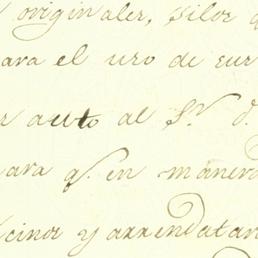 originales, silos
para el uso de sus
auto al Sr. d.
para q. en manera
cinos y arrendatar